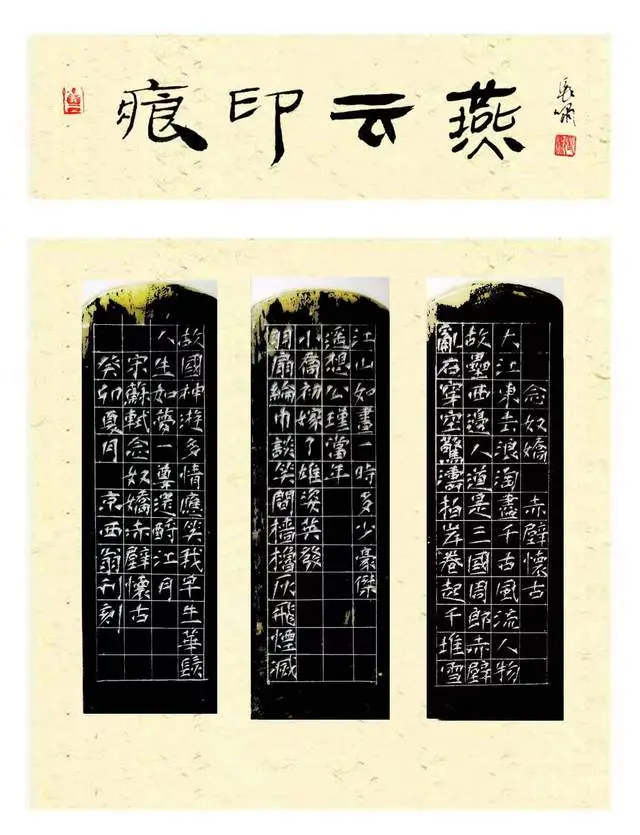 燕云印痕
念奴嬌 赤壁懷古
大江東去浪淘盡千古風流人物
故壘西邊人道是三國周郎赤壁
亂石穿空驚濤拍岸卷起千堆雪
江山如畫一時多少豪傑
遥想公瑾當年
小喬初嫁了雄姿英發
羽扇綸巾談笑間檣櫓灰飛煙滅
故國神游多情應笑我早生華髮
人生如夢一尊還酹江月
宋蘇軾念奴嬌赤壁懷古
癸卯夏月 京西翁利刻